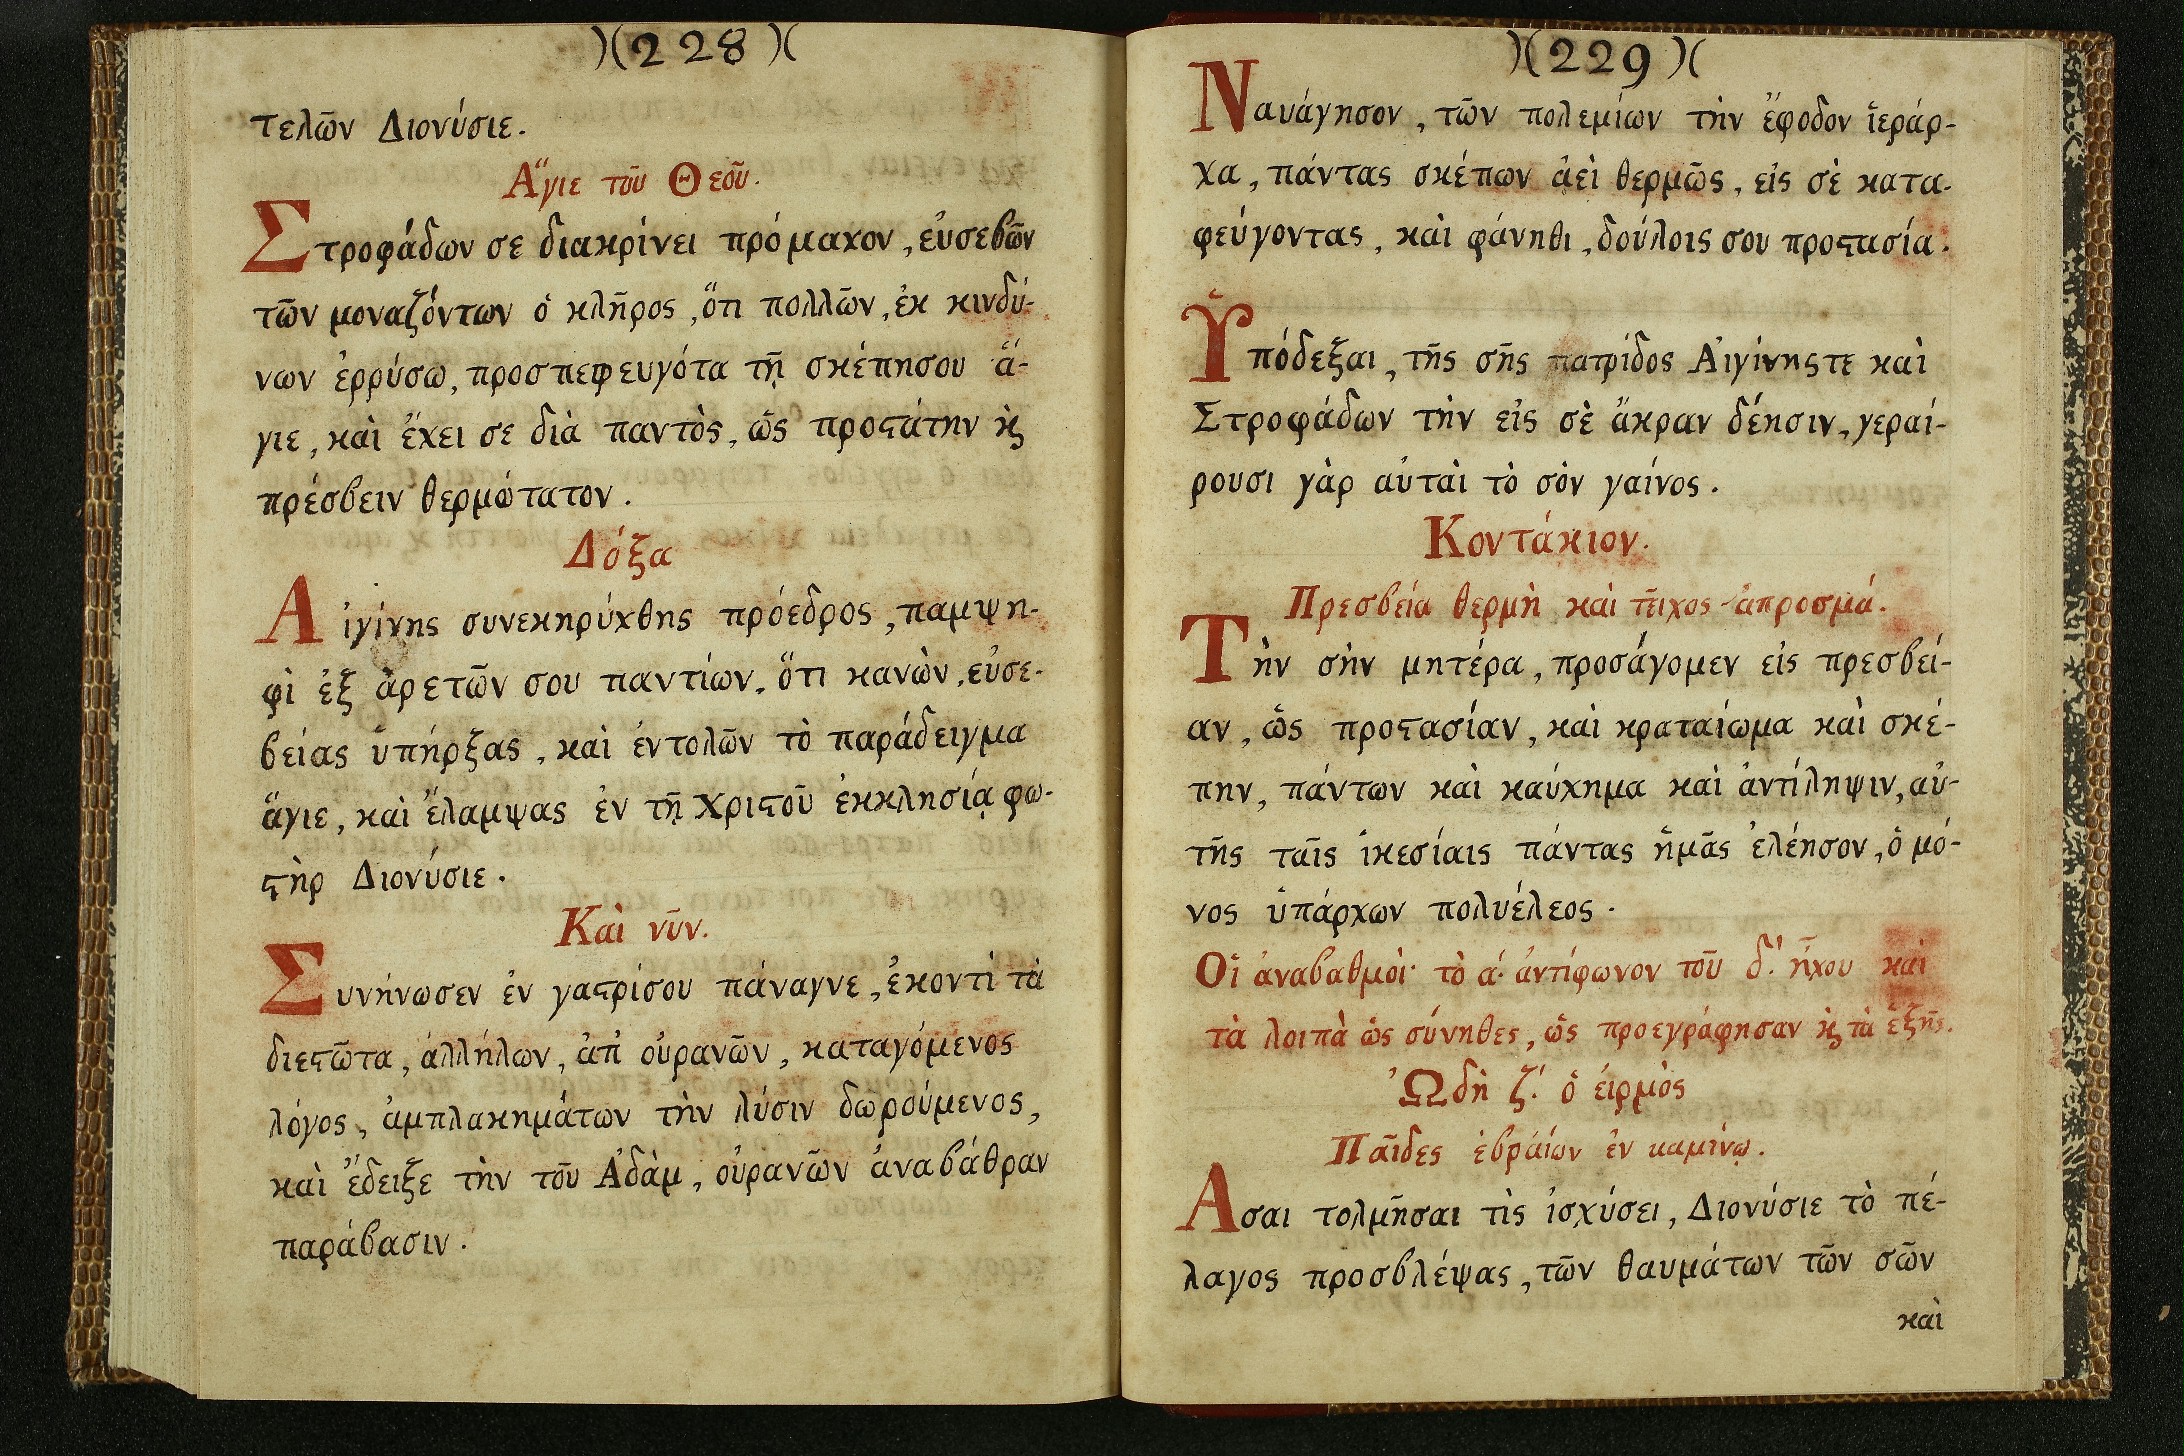 )(228)(
τελῶν Διονύσιε.
Ἅγιε τοῦ Θεοῦ.
Στροφάδων σε διακρίνει πρόμαχον, εὐσεβῶν
τῶν μοναζόντων ὁ κλῆρος, ὅτι πολλῶν, ἐκ κινδύ-
νων ἐρρύσω, προσπεφευγότα τῇ σκέπησου ἅ-
γιε, καὶ ἔχει σε διὰ παντὸς, ὡς προϛάτην ϗ
πρέσβειν θερμώτατον.
Δόξα
Αἰγίνης συνεκηρύχθης πρόεδρος, παμψη-
φὶ ἐξ ἀρετῶν σου παντίων, ὅτι κανὼν, εὐσε-
βείας ὑπήρξας, καὶ ἐντολῶν τὸ παράδειγμα
ἅγιε, καὶ ἔλαμψας ἐν τῇ Χριϛοῦ ἐκκλησίᾳ φω-
ϛὴρ Διονύσιε.
Καὶ νῦν.
Συνήνωσεν ἐν γαϛρίσου πάναγνε, ἑκοντὶ τὰ
διεϛῶτα, ἀλλήλων, ἀπ' οὐρανῶν, καταγόμενος
λόγος, ἀμπλακημάτων τὴν λύσιν δωρούμενος,
καὶ ἔδειξε τὴν τοῦ Ἀδὰμ, οὐρανῶν ἀναβάθραν
παράβασιν.
)(229)(
Ναυάγησον, τῶν πολεμίων τὴν ἔφοδον ἱεράρ-
χα, πάντας σκέπων ἀεὶ θερμῶς, εἰς σὲ κατα-
φεύγοντας, καὶ φάνηθι, δούλοις σου προϛασία.
Ὑπόδεξαι, τῆς σῆς πατρίδος Αἰγίνηςτε καὶ
Στροφάδων τὴν εἰς σὲ ἄκραν δέησιν, γεραί-
ρουσι γὰρ αὐταὶ τὸ σὸν γαίνος.
Κοντάκιον.
Πρεσβεία θερμὴ καὶ τεῖχος ἀπροσμά.
Τὴν σὴν μητέρα, προσάγομεν εἰς πρεσβεί-
αν, ὡς προϛασίαν, καὶ κραταίωμα καὶ σκέ-
πην, πάντων καὶ καύχημα καὶ ἀντίληψιν, αὐ-
τῆς ταῖς ἱκεσίαις πάντας ἡμᾶς ἐλέησον, ὁ μό-
νος ὑπάρχων πολυέλεος.
Οἱ ἀναβαθμοὶ· τὸ ά· ἀντίφωνον τοῦ δ΄. ἤχου καὶ
τὰ λοιπὰ ὡς σύνηθες, ὡς προεγράφησαν ϗ τὰ ἑξῆς.
Ὠδὴ ζ΄. ὁ εἱρμὸς
Παῖδες ἑβραίων ἐν καμίνῳ.
Ασαι τολμῆσαι τὶς ἰσχύσει, Διονύσιε τὸ πέ-
λαγος προσβλέψας, τῶν θαυμάτων τῶν σῶν
καὶ